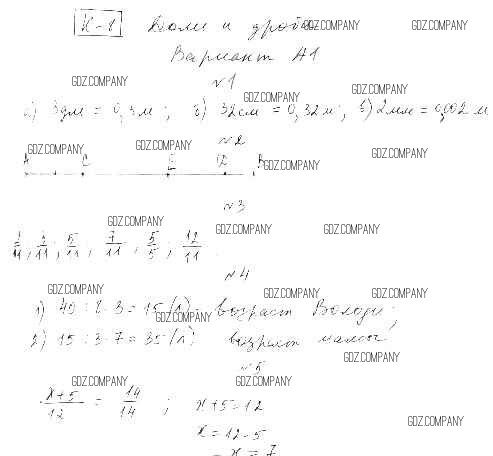 К-8 Доли и дроби
GDZ.COMPANY GDZ.COMPANY
Вариант А1
GDZ.COMPANY №1 GDZ.COMPANY
GDZ.COMPANY
а) 3дм = 0,3м; б) 32см = 0,32м; в) 2мм = 0,002м
GDZ.COMPANY GDZ.COMPANY №2 GDZ.COMPANY
A C E D B GDZ.COMPANY
№3
GDZ.COMPANY GDZ.COMPANY GDZ.COMPANY
3/11; 5/11; 7/11; 5/5; 12/11
№4
GDZ.COMPANY GDZ.COMPANY GDZ.COMPANY
1) 40 : 8 · 3 = 15 (л) - возраст Володи;
GDZ.COMPANY
2) 15 : 3 · 7 = 35 (л) возраст мамы
GDZ.COMPANY
№5
GDZ.COMPANY GDZ.COMPANY
x+5/12 = 14/14; x+5=12
GDZ.COMPANY
x=12-5
x=7